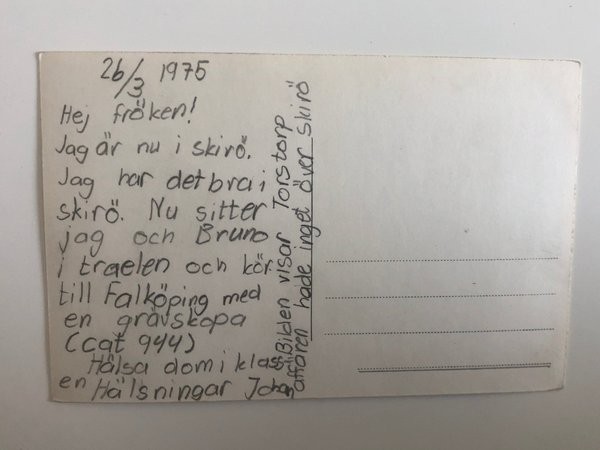 26/3 1975
Hej fröken!
Jag är nu i skirö.
Jag har det bra i
skirö. Nu sitter
jag och Bruno
i traelen och kör
till Falköping med
en grävskopa
(cat 944)
Hälsa dom i klass-
en Hälsningar Johan
Bilden visar Torstorp
affären hade inget över skirö